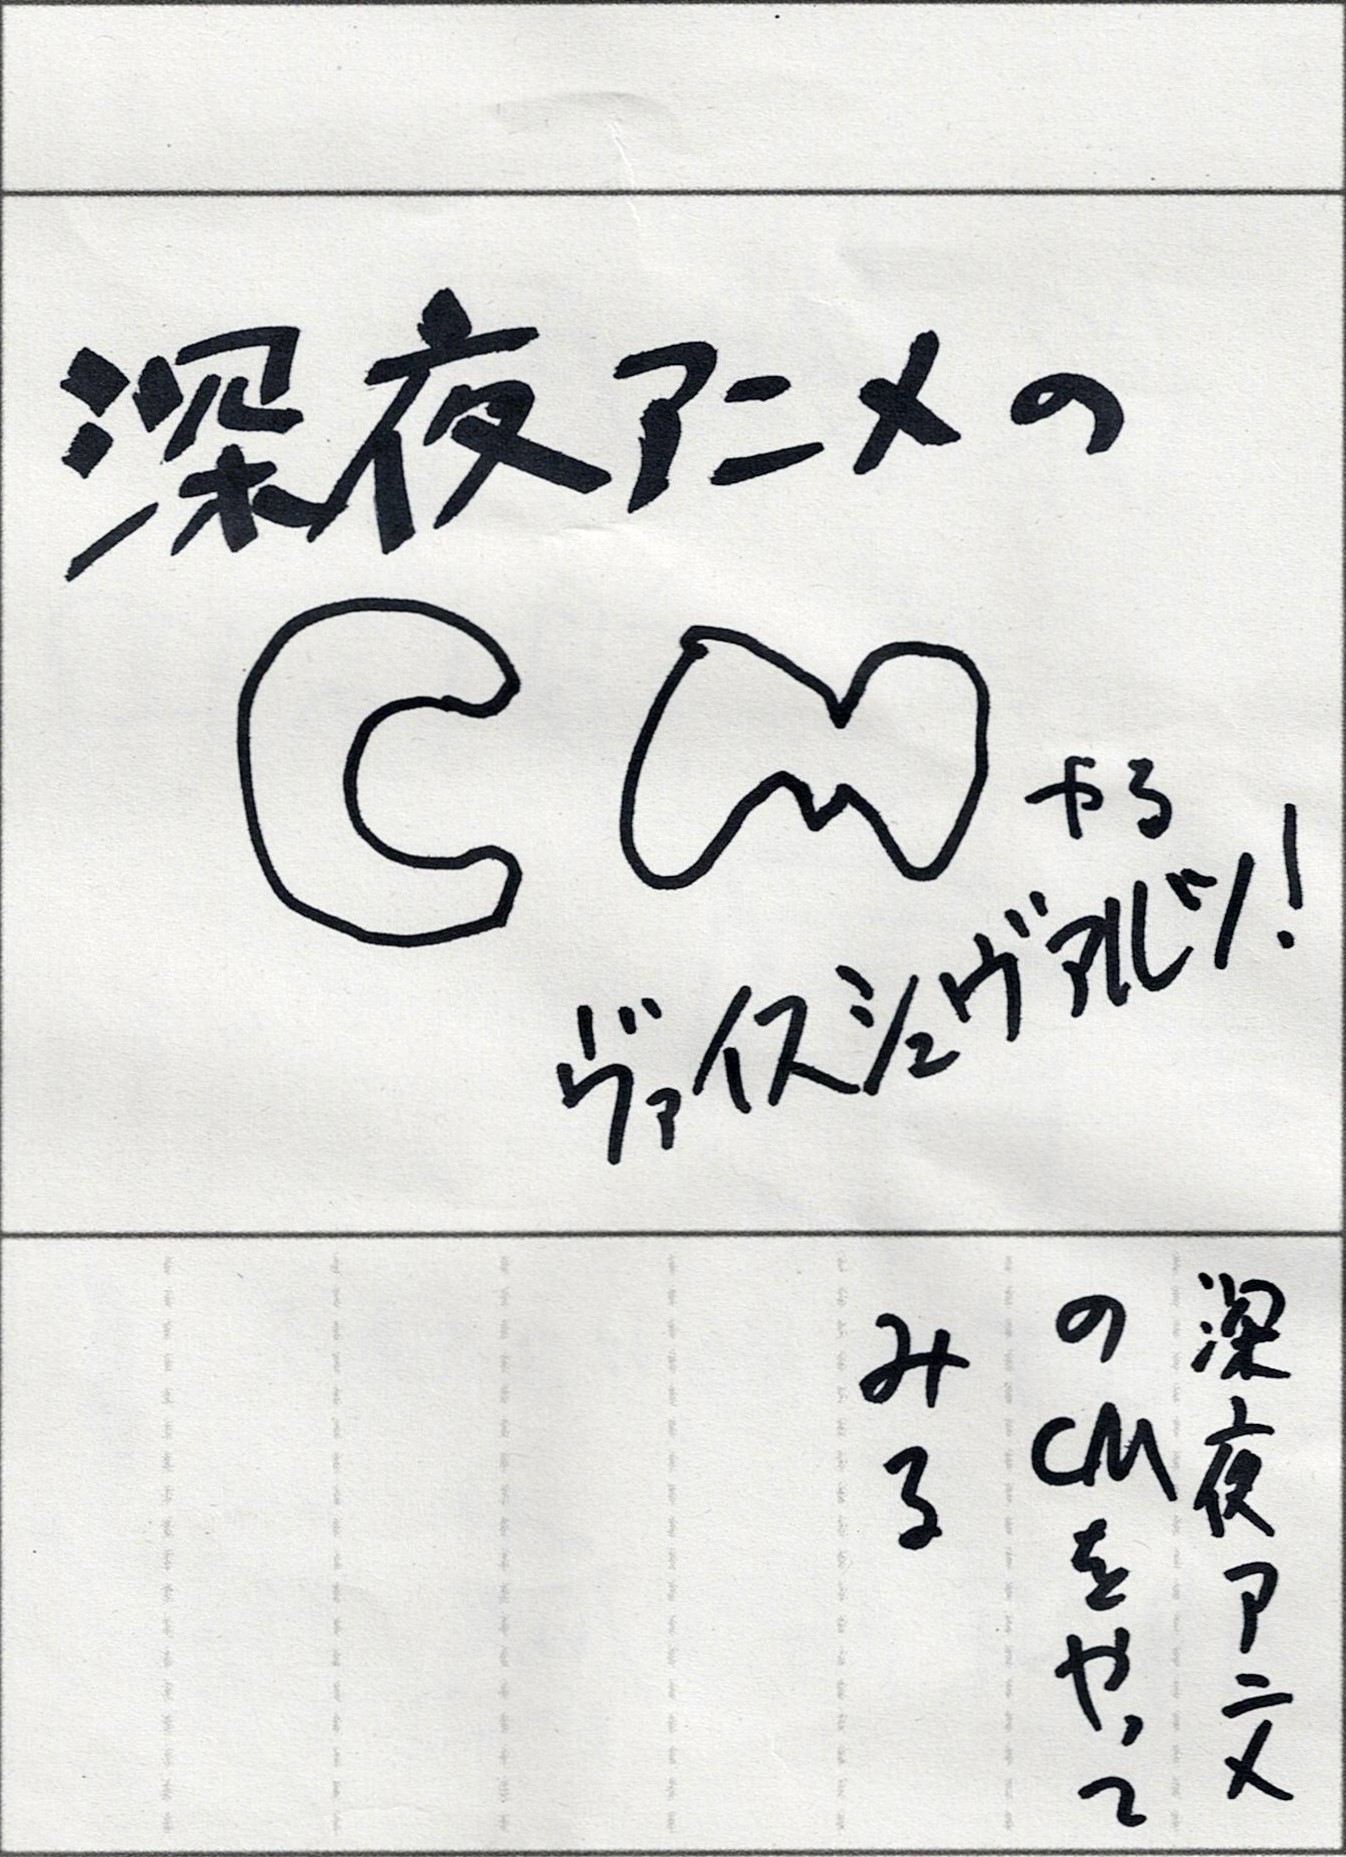 深夜アニメの
CM
やる
ヴァイスシュヴァルツ!
深夜アニメ
のCMをやって
みる